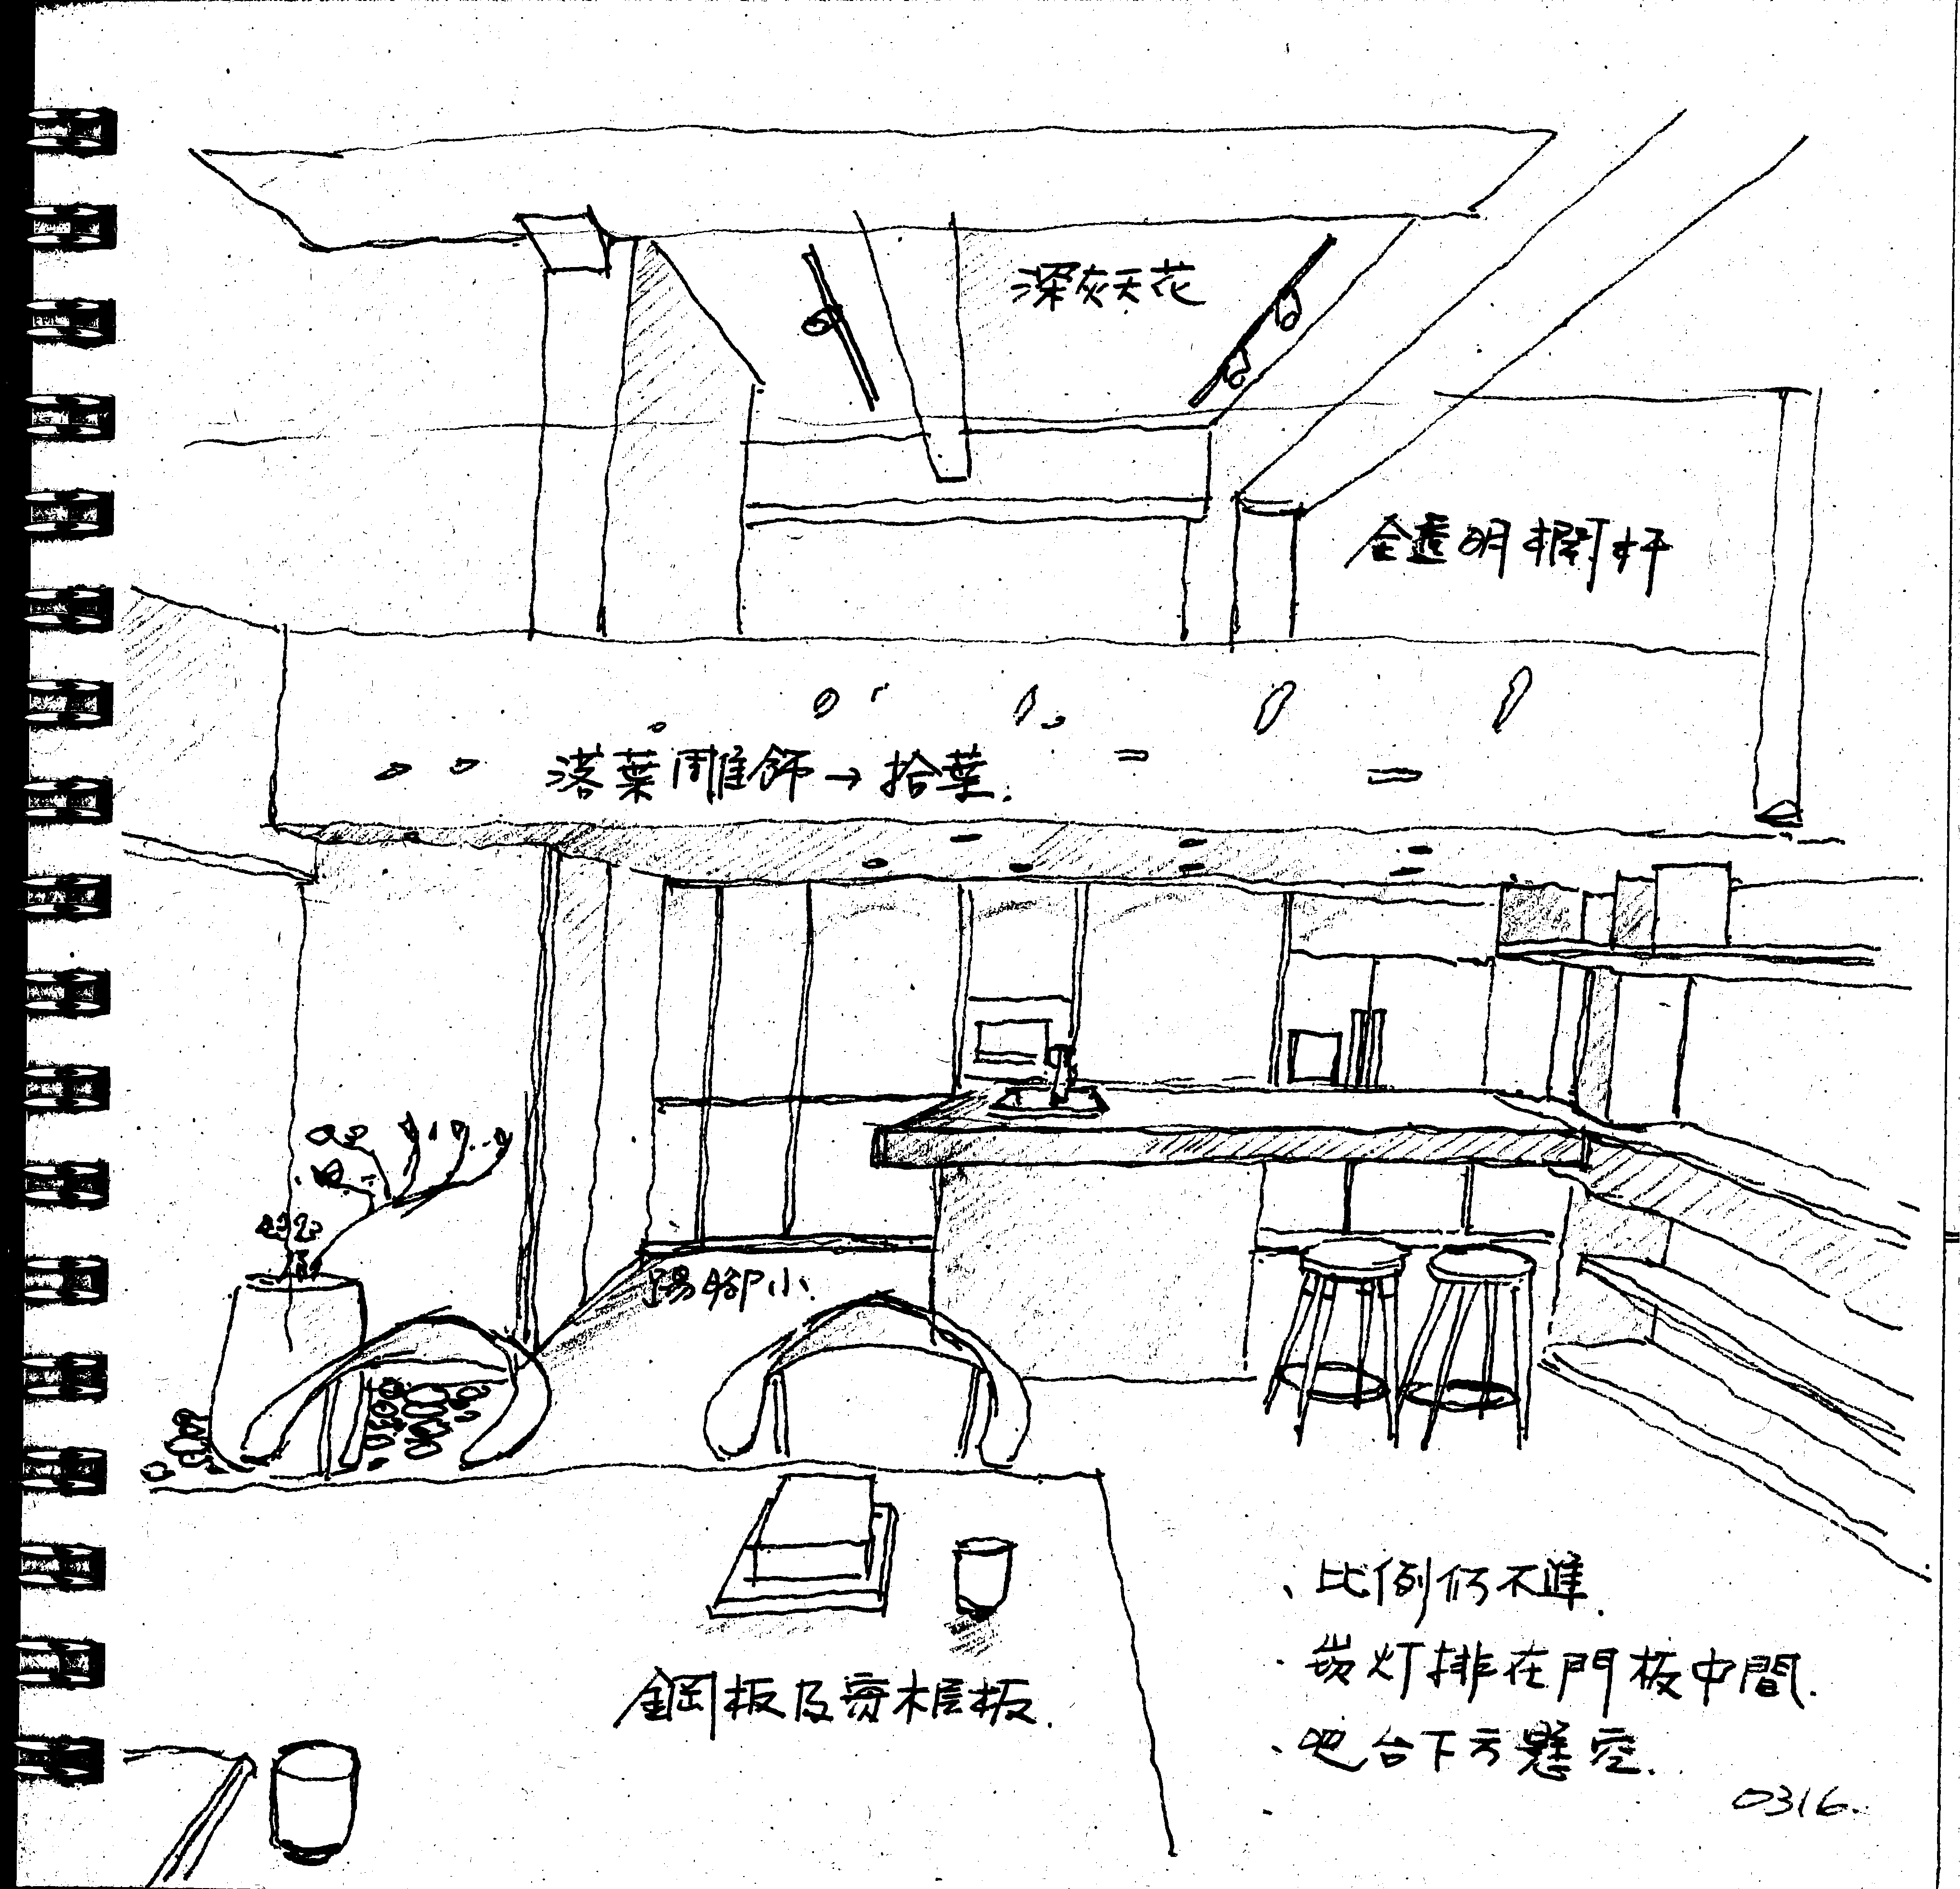 深灰天花
全透明欄杆
落葉雕飾→拾葉.
踢腳小.
鋼板及實木層板.
、比例仍不準.
·崁灯排在門板中間.
、吧台下方懸空.
0316.